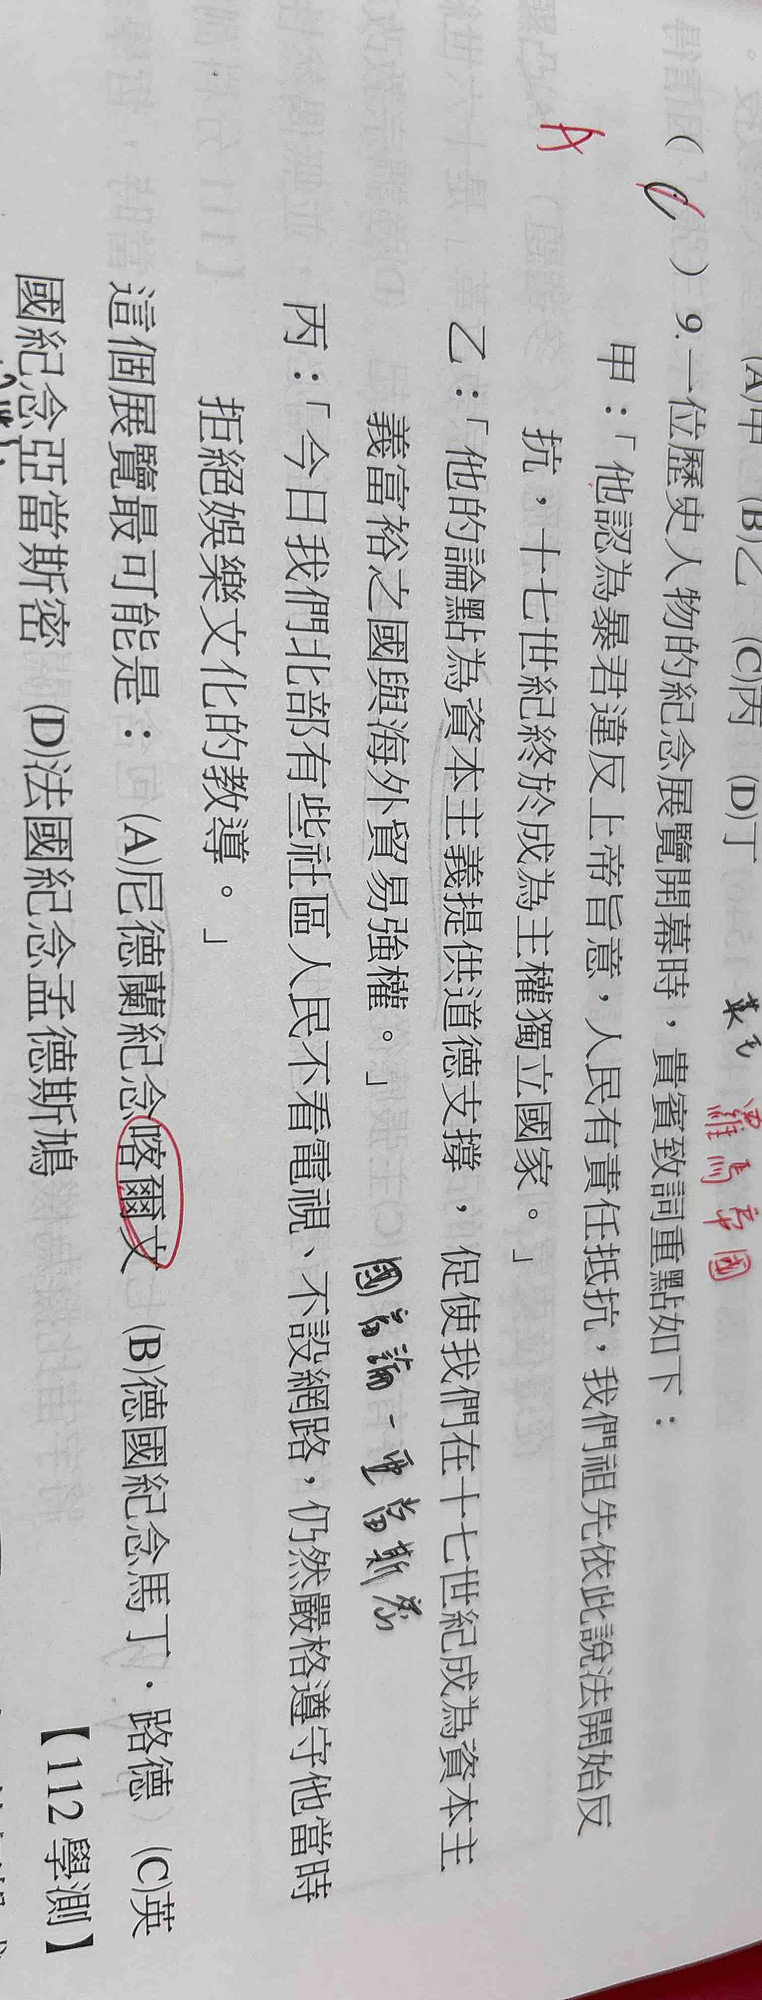 (A)甲 (B)乙 (C)丙 (D)丁
羅馬帝國
A
( C ) 9.一位歷史人物的紀念展覽開幕時，貴賓致詞重點如下：
甲：「他認為暴君違反上帝旨意，人民有責任抵抗，我們祖先依此說法開始反
抗，十七世紀終於成為主權獨立國家。」
乙：「他的論點為資本主義提供道德支撐，促使我們在十七世紀成為資本主
義富裕之國與海外貿易強權。」
國富論-亞當斯密
丙：「今日我們北部有些社區人民不看電視、不設網路，仍然嚴格遵守他當時
拒絕娛樂文化的教導。」
這個展覽最可能是：(A)尼德蘭紀念喀爾文 (B)德國紀念馬丁．路德 (C)英
國紀念亞當斯密 (D)法國紀念孟德斯鳩 【112 學測】